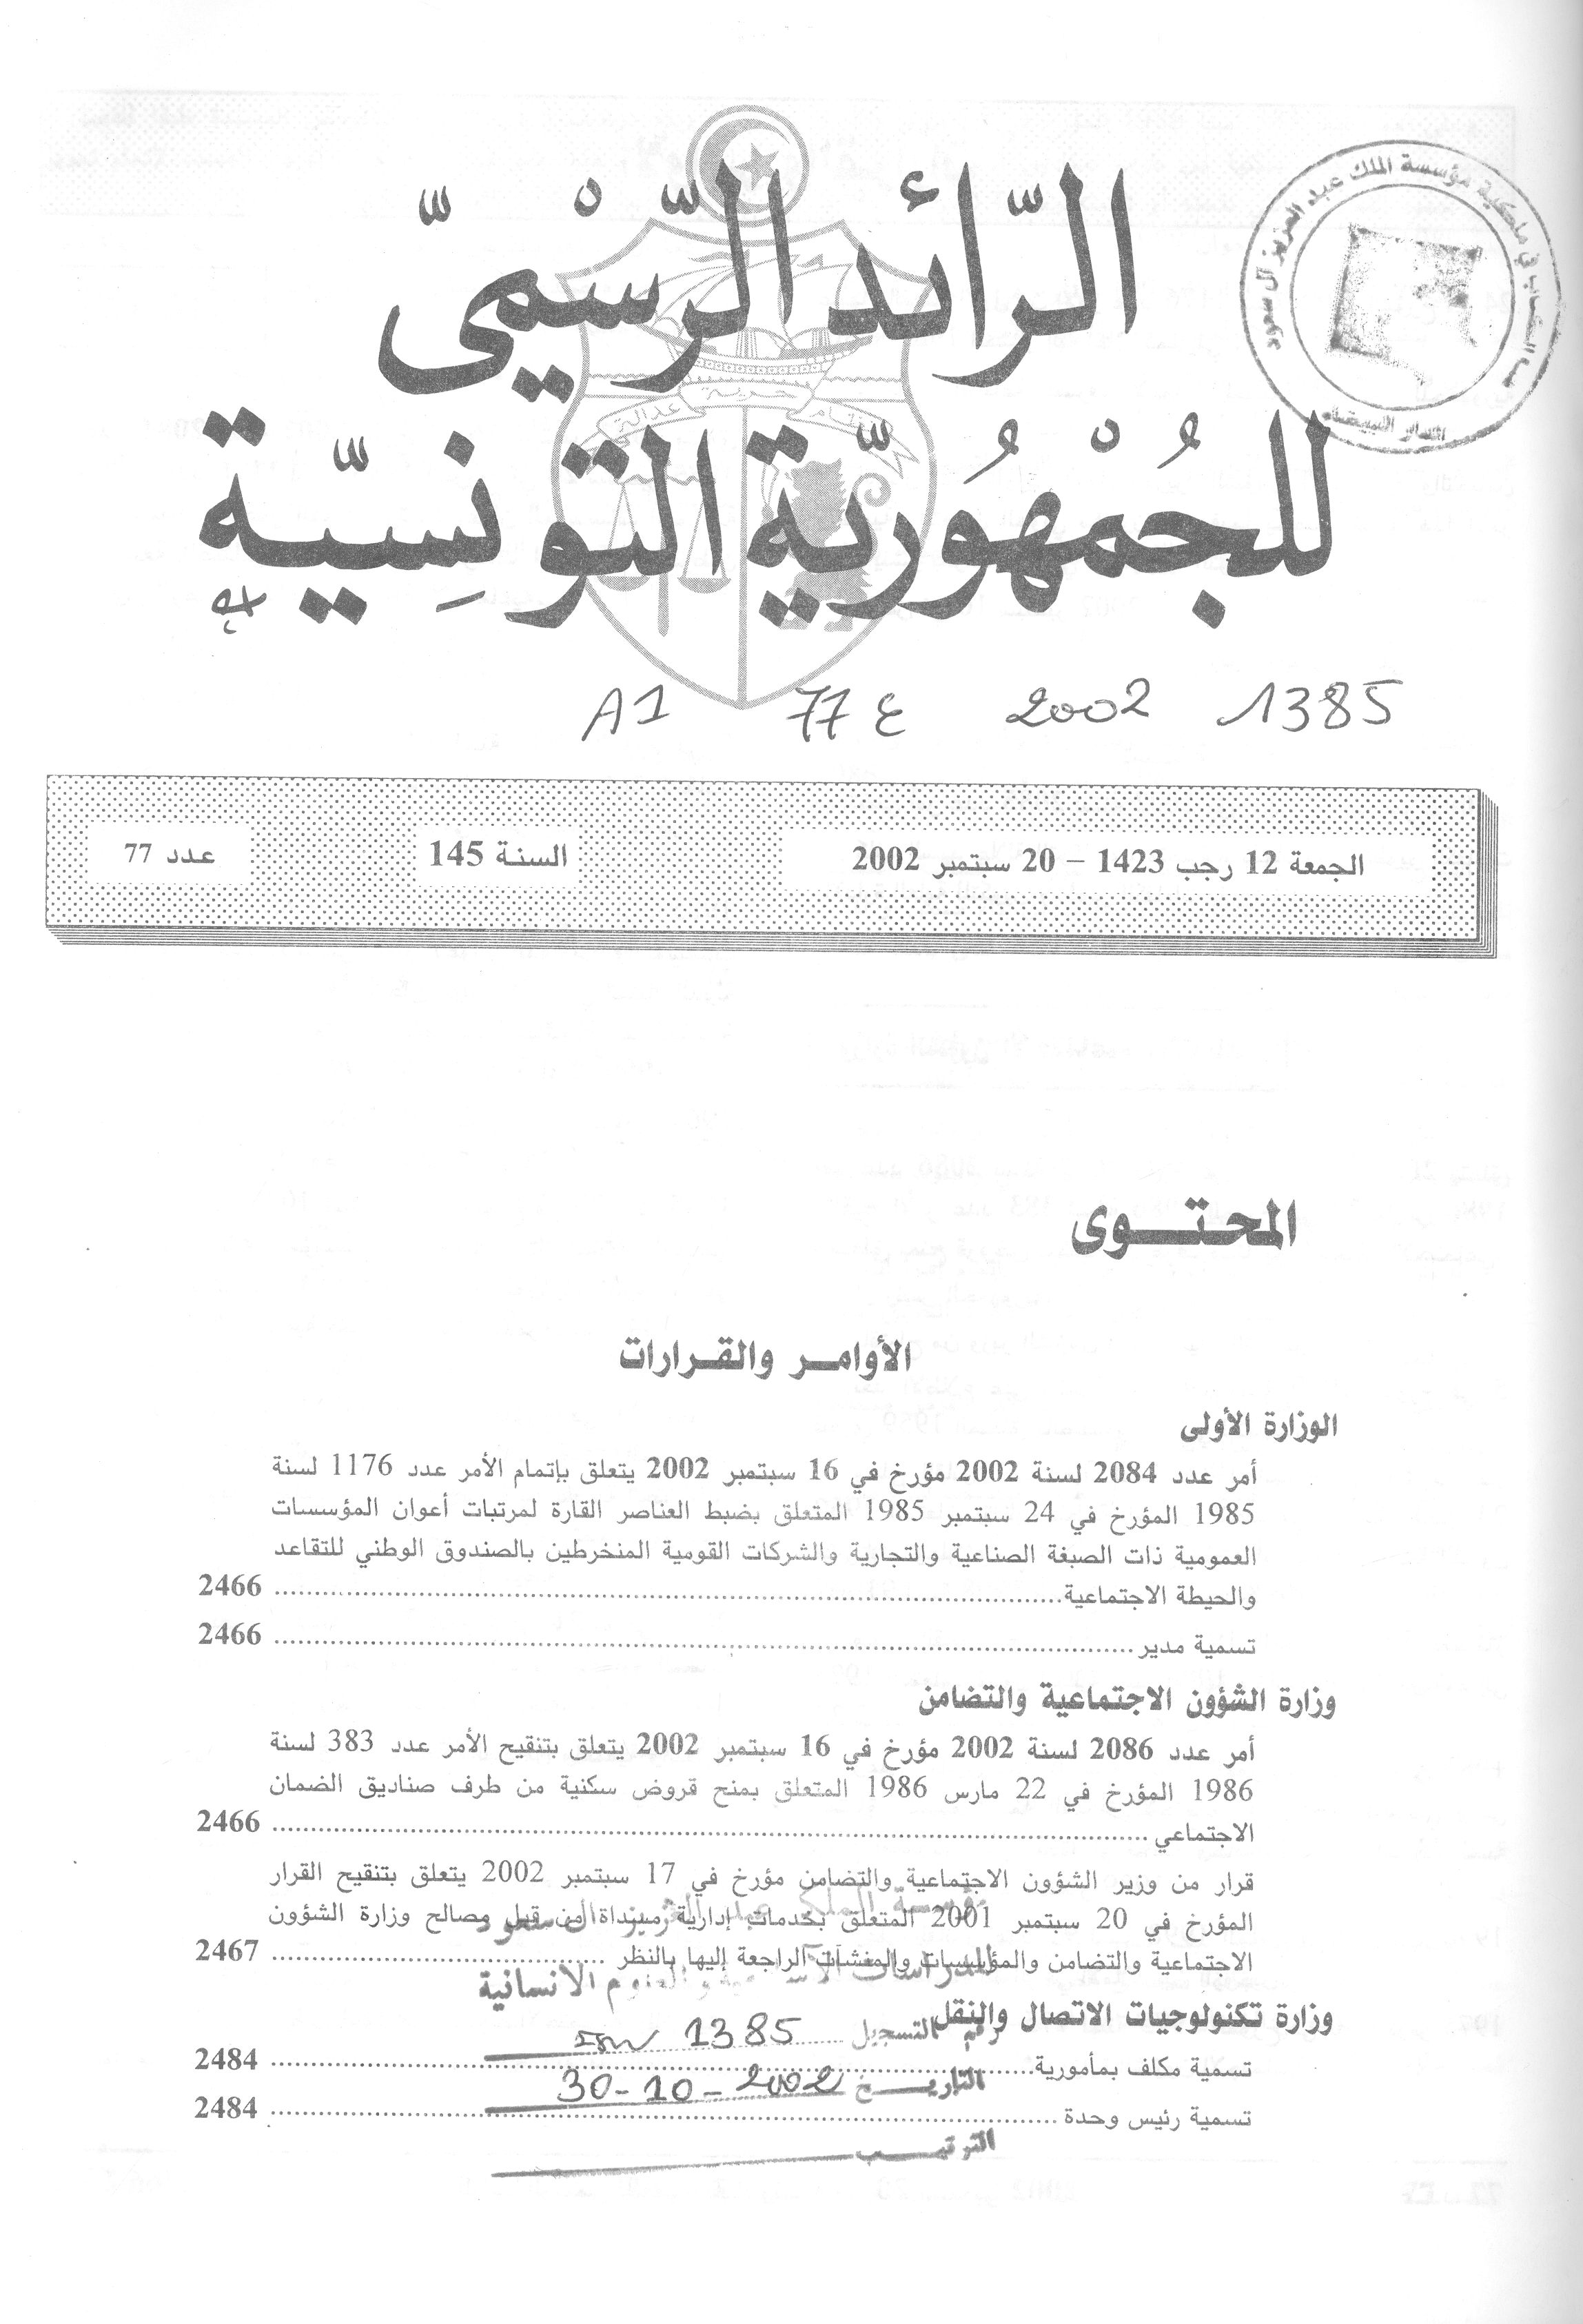 الرّائد الرّسْميّ
للجُمْهُوريّة التّونِسيّة
نظام حرية عدالة
1385 2002 ع 77 A1
الجمعة 12 رجب 1423 – 20 سبتمبر 2002
السنة 145
عدد 77
المحتــوى
الأوامـر والقـرارات
الوزارة الأولى
أمر عدد 2084 لسنة 2002 مؤرخ في 16 سبتمبر 2002 يتعلق بإتمام الأمر عدد 1176 لسنة
1985 المؤرخ في 24 سبتمبر 1985 المتعلق بضبط العناصر القارة لمرتبات أعوان المؤسسات
العمومية ذات الصبغة الصناعية والتجارية والشركات القومية المنخرطين بالصندوق الوطني للتقاعد
والحيطة الاجتماعية 2466
تسمية مدير 2466
وزارة الشؤون الاجتماعية والتضامن
أمر عدد 2086 لسنة 2002 مؤرخ في 16 سبتمبر 2002 يتعلق بتنقيح الأمر عدد 383 لسنة
1986 المؤرخ في 22 مارس 1986 المتعلق بمنح قروض سكنية من طرف صناديق الضمان
الاجتماعي 2466
قرار من وزير الشؤون الاجتماعية والتضامن مؤرخ في 17 سبتمبر 2002 يتعلق بتنقيح القرار
المؤرخ في 20 سبتمبر 2001 المتعلق بخدمات إدارية مسداة من قبل مصالح وزارة الشؤون
الاجتماعية والتضامن والمؤسسات والمنشآت الراجعة إليها بالنظر 2467
مؤسسة الملك عبد العزيز آل سعود
للدراسات الاسلامية والعلوم الانسانية
وزارة تكنولوجيات الاتصال والنقل
رقم التسجيل 1385
تسمية مكلف بمأمورية 2484
التاريخ 30-10-2002
تسمية رئيس وحدة 2484
الترتيب